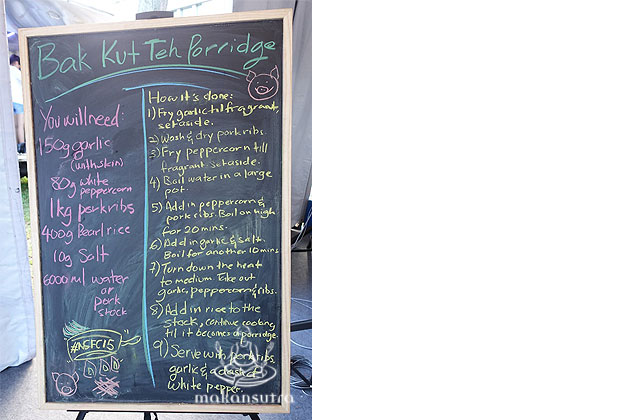 Bak Kut Teh Porridge
You will need:
150g garlic
(with skin)
80g white
peppercorn
1kg porkribs
400g Pearl rice
10g Salt
6000ml water
or
pork
stock
#ASFC15
How it's done:
1) Fry garlic till fragrant,
set aside.
2) Wash & dry pork ribs.
3) Fry peppercorn till
fragrant. set aside.
4) Boil water in a large
pot.
5) Add in peppercorn &
pork ribs. Boil on high
for 20 mins.
6) Add in garlic & salt.
Boil for another 10 mins
7) Turn down the heat
to medium. Take out
garlic, peppercorn & ribs.
8) Add in rice to the
stock, continue cooking
til it becomes a porridge.
9) Serve with pork ribs
garlic & a dash of
white pepper.
makansutra